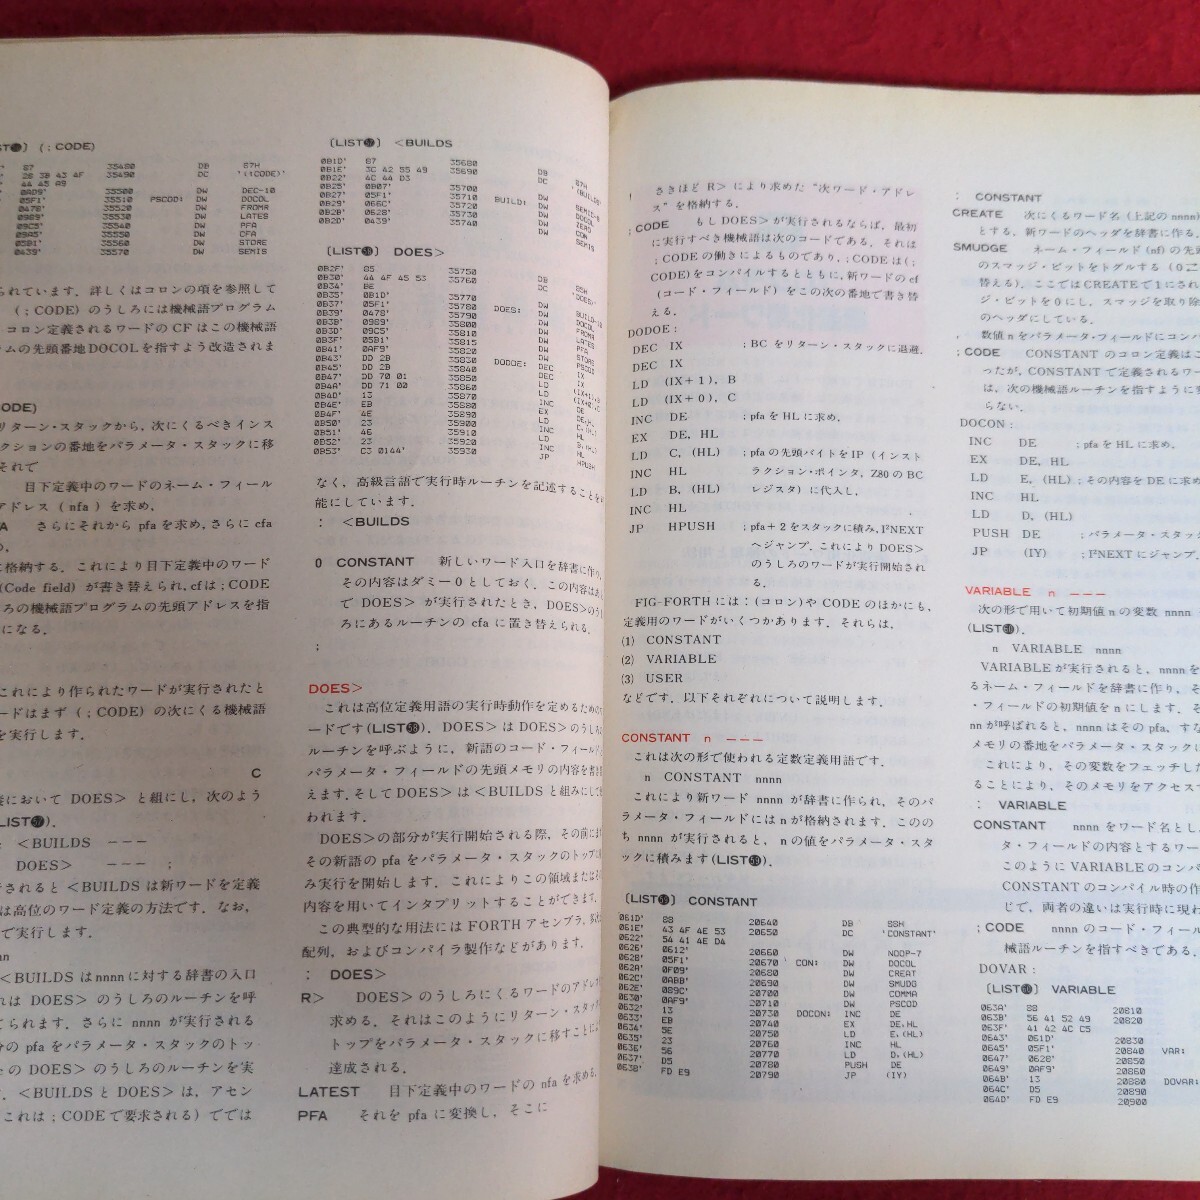 (;CODE)
87 35480 DB 87H
28 3B 43 4F 35490 DC '(;CODE)'
44 45 A9
0AD9' 35500 DW DEC-10
05F1' 35510 PSCOD: DW DOCOL
0478' 35520 DW FROMR
0989' 35530 DW LATES
09C5' 35540 DW PFA
09A5' 35550 DW CFA
05B1' 35560 DW STORE
0439' 35570 DW SEMIS
られています．詳しくはコロンの項を参照して
(;CODE)のうしろには機械語プログラム
コロン定義されるワードのCFはこの機械語
ラムの先頭番地DOCOLを指すよう改造されま
CODE)
リターン・スタックから，次にくるべきインス
クションの番地をパラメータ・スタックに移
それで
目下定義中のワードのネーム・フィール
アドレス(nfa)を求め，
さらにそれから pfaを求め，さらに cfa
に格納する．これにより目下定義中のワード
(Code field)が書き替えられ，cfは；CODE
ろの機械語プログラムの先頭アドレスを指
になる．
これにより作られたワードが実行されたと
ードはまず(;CODE)の次にくる機械語
を実行します．
C
において DOES> と組にし，次のよう
LIST57)．
<BUILDS ---
DOES> --- ；
行されると<BUILDSは新ワードを定義
は高位のワード定義の方法です．なお，
で実行します．
<BUILDSはnnnnに対する辞書の入口
れは DOES> のうしろのルーチンを呼
てられます．さらに nnnn が実行される
分の pfaをパラメータ・スタックのトッ
の DOES> のうしろのルーチンを実
．<BUILDSとDOES>は，アセン
これは；CODEで要求される)でては
〔LIST57〕 <BUILDS
0B1D' 87 35680 DB 87H
0B1E' 3C 42 55 49 35690 DC '<BUILDS'
0B22' 4C 44 D3
0B25' 0B07' 35700 DW SEMIS-8
0B27' 05F1' 35710 BUILD: DW DOCOL
0B29' 066C' 35720 DW ZERO
0B2B' 0628' 35730 DW CON
0B2D' 0439' 35740 DW SEMIS
〔LIST58〕 DOES>
0B2F' 85 35750 DB 85H
0B30' 44 4F 45 53 35760 DC 'DOES>'
0B34' BE
0B35' 0B1D' 35770 DW BUILD-10
0B37' 05F1' 35780 DOES: DW DOCOL
0B39' 0478' 35790 DW FROMR
0B3B' 0989' 35800 DW LATES
0B3D' 09C5' 35810 DW PFA
0B3F' 05B1' 35815 DW STORE
0B41' 0AF9' 35820 DW PSCOD
0B43' DD 2B 35830 DODOE: DEC IX
0B45' DD 2B 35840 DEC IX
0B47' DD 70 01 35850 LD (IX+1),B
0B4A' DD 71 00 35860 LD (IX+0),C
0B4D' 13 35870 INC DE
0B4E' EB 35880 EX DE,HL
0B4F' 4E 35890 LD C,(HL)
0B50' 23 35900 INC HL
0B51' 46 35910 LD B,(HL)
0B52' 23 35920 INC HL
0B53' C3 0144' 35930 JP HPUSH
なく，高級言語で実行時ルーチンを記述することを
能にしています．
： <BUILDS
0 CONSTANT 新しいワード入口を辞書に作り，
その内容はダミー0としておく．この内容はあ
で DOES> が実行されたとき，DOES>のう
ろにあるルーチンの cfa に置き替えられる．
；
DOES>
これは高位定義用語の実行時動作を定めるための
ードです(LIST58)．DOES> は DOES> のうしろ
ルーチンを呼ぶように，新語のコード・フィールド
パラメータ・フィールドの先頭メモリの内容を書き
えます．そして DOES> は <BUILDS と組みにして
われます．
DOES>の部分が実行開始される際，その前に
その新語の pfa をパラメータ・スタックのトップに
み実行を開始します．これによりこの領域または
内容を用いてインタプリットすることができます．
この典型的な用法には FORTH アセンブラ，
配列，およびコンパイラ製作などがあります．
： DOES>
R> DOES> のうしろにくるワードのアドレス
求める．それはこのようにリターン・スタック
トップをパラメータ・スタックに移すことに
達成される．
LATEST 目下定義中のワードの nfa を求める．
PFA それを pfa に変換し，そこに
さきほど R> により求めた“次ワード・アドレ
ス”を格納する．
；CODE もし DOES> が実行されるならば，最初
に実行すべき機械語は次のコードである．それは
；CODEの働きによるものであり，；CODEは(；
CODE)をコンパイルするとともに，新ワードの cf
(コード・フィールド)をこの次の番地で書き替
える．
DODOE：
DEC IX ；BCをリターン・スタックに退避．
DEC IX
LD (IX+1)，B
LD (IX+0)，C
INC DE ；pfaをHLに求め．
EX DE，HL
LD C，(HL) ；pfaの先頭バイトをIP(インスト
INC HL ラクション・ポインタ，Z80のBC
LD B，(HL) レジスタ)に代入し，
INC HL
JP HPUSH ；pfa+2をスタックに積み，I²NEXT
へジャンプ．これによりDOES>
のうしろのワードが実行開始され
る．
FIG-FORTHには：(コロン)やCODEのほかにも，
定義用のワードがいくつかあります．それらは，
(1) CONSTANT
(2) VARIABLE
(3) USER
などです．以下それぞれについて説明します．
CONSTANT n ---
これは次の形で使われる定数定義用語です．
n CONSTANT nnnn
これにより新ワード nnnn が辞書に作られ，そのパ
ラメータ・フィールドにはnが格納されます．このの
ち nnnn が実行されると，nの値をパラメータ・スタ
ックに積みます(LIST59)．
〔LIST59〕 CONSTANT
061D' 88 20640 DB 88H
061E' 43 4F 4E 53 20650 DC 'CONSTANT'
0622' 54 41 4E D4
0626' 0612' 20660 DW NOOP-7
0628' 05F1' 20670 CON: DW DOCOL
062A' 0F09' 20680 DW CREAT
062C' 0ABB' 20690 DW SMUDG
062E' 089C' 20700 DW COMMA
0630' 0AF9' 20710 DW PSCOD
0632' 13 20730 DOCON: INC DE
0633' EB 20740 EX DE,HL
0634' 5E 20750 LD E,(HL)
0635' 23 20760 INC HL
0636' 56 20770 LD D,(HL)
0637' D5 20780 PUSH DE
0638' FD E9 20790 JP (IY)
： CONSTANT
CREATE 次にくるワード名(上記のnnnn)
とする，新ワードのヘッダを辞書に作る．
SMUDGE ネーム・フィールド(nf)の先頭
のスマッジ・ビットをトグルする(0⇄
替える)．ここではCREATEで1にされ
ジ・ビットを0にし，スマッジを取り除
のヘッダにしている．
，数値nをパラメータ・フィールドにコンパ
；CODE CONSTANTのコロン定義はこ
ったが，CONSTANTで定義されるワー
は，次の機械語ルーチンを指すように変
らない．
DOCON：
INC DE ；pfaをHLに求め．
EX DE，HL
LD E，(HL)；その内容をDEに求め
INC HL
LD D，(HL)
PUSH DE ；パラメータ・スタック
JP (IY) ；I²NEXTにジャンプ．
VARIABLE n ---
次の形で用いて初期値nの変数 nnnn
(LIST60)．
n VARIABLE nnnn
VARIABLEが実行されると，nnnnを
るネーム・フィールドを辞書に作り，そ
・フィールドの初期値をnにします．そ
nnが呼ばれると，nnnnはその pfa，すな
メモリの番地をパラメータ・スタックに
これにより，その変数をフェッチした
ることにより，そのメモリをアクセス
： VARIABLE
CONSTANT nnnnをワード名とし，
タ・フィールドの内容とするワー
このようにVARIABLEのコンパ
CONSTANTのコンパイル時の作
じで，両者の違いは実行時に現わ
；CODE nnnnのコード・フィール
械語ルーチンを指すべきである．
DOVAR：
〔LIST60〕 VARIABLE
063A' 88 20810
063B' 56 41 52 49 20820
063F' 41 42 4C C5
0643' 061D' 20830
0645' 05F1' 20840 VAR:
0647' 0628' 20850
0649' 0AF9' 20860
064B' 13 20880 DOVAR:
064C' D5 20890
064D' FD E9 20900